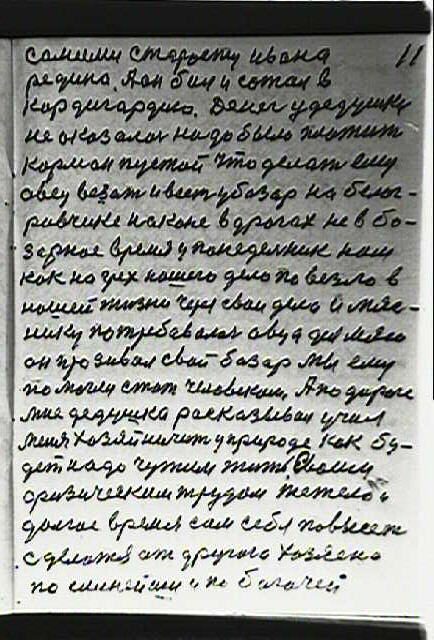 11
самими старосту ивана
редина. Аон бил и сожал в
кордигардию. Денег удедушки
не оказалос надо было платит
корман пустой что делат ему
овец везат ивести убазар на белог-
равчине наконе в дрогах не в ба-
зарное время упонедельник нам
как на грех нашего дело повезло в
нашей жизни чуя сваи дела й мяс-
нику потребавалас овца для мяса
он
свой базар мы ему
помогли стат человеком. А подороге
мне дедушка расказывал учил
меня хозяйничит у природе как бу-
дет надо чужим жит Своим
физическим трудом тежело и
долгое время сам себя
сделатся от другого хозяена
по
и по богачей